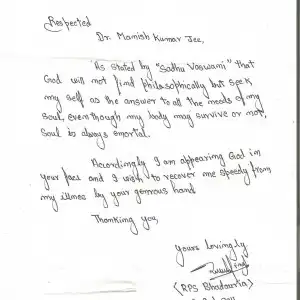 Respected
Dr. Manish Kumar Jee,
As stated by "Sadhu Vaswani" that
God will not find philosophically but seek
my self as the answer to all the needs of my
soul, even though my body may survive or not,
soul is always imortal.
Accordingly I am appearing God in
your face and I wish to recover me speedy from
my illness by your generous hand
Thanking you,
Yours lovingly
(RPS Bhadouria)